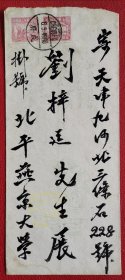 寄天津九河北三條石228號
劉梓廷先生展
北平燕京大學
掛號